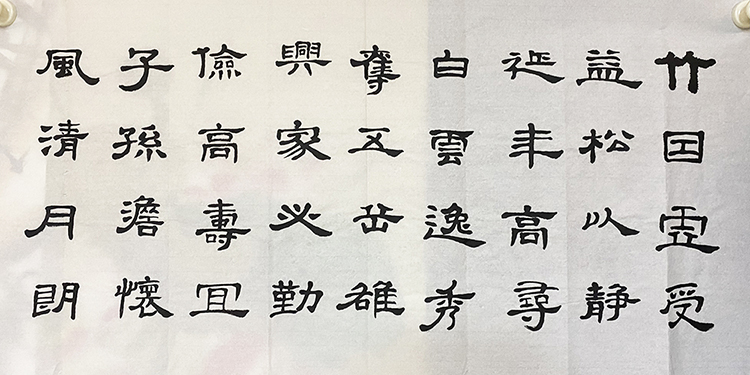 竹因虚受
益松以静
延年高尋
白雲逸秀
奪五岳雄
興家必勤
儉高壽宜
子孫澹懷
風清月朗